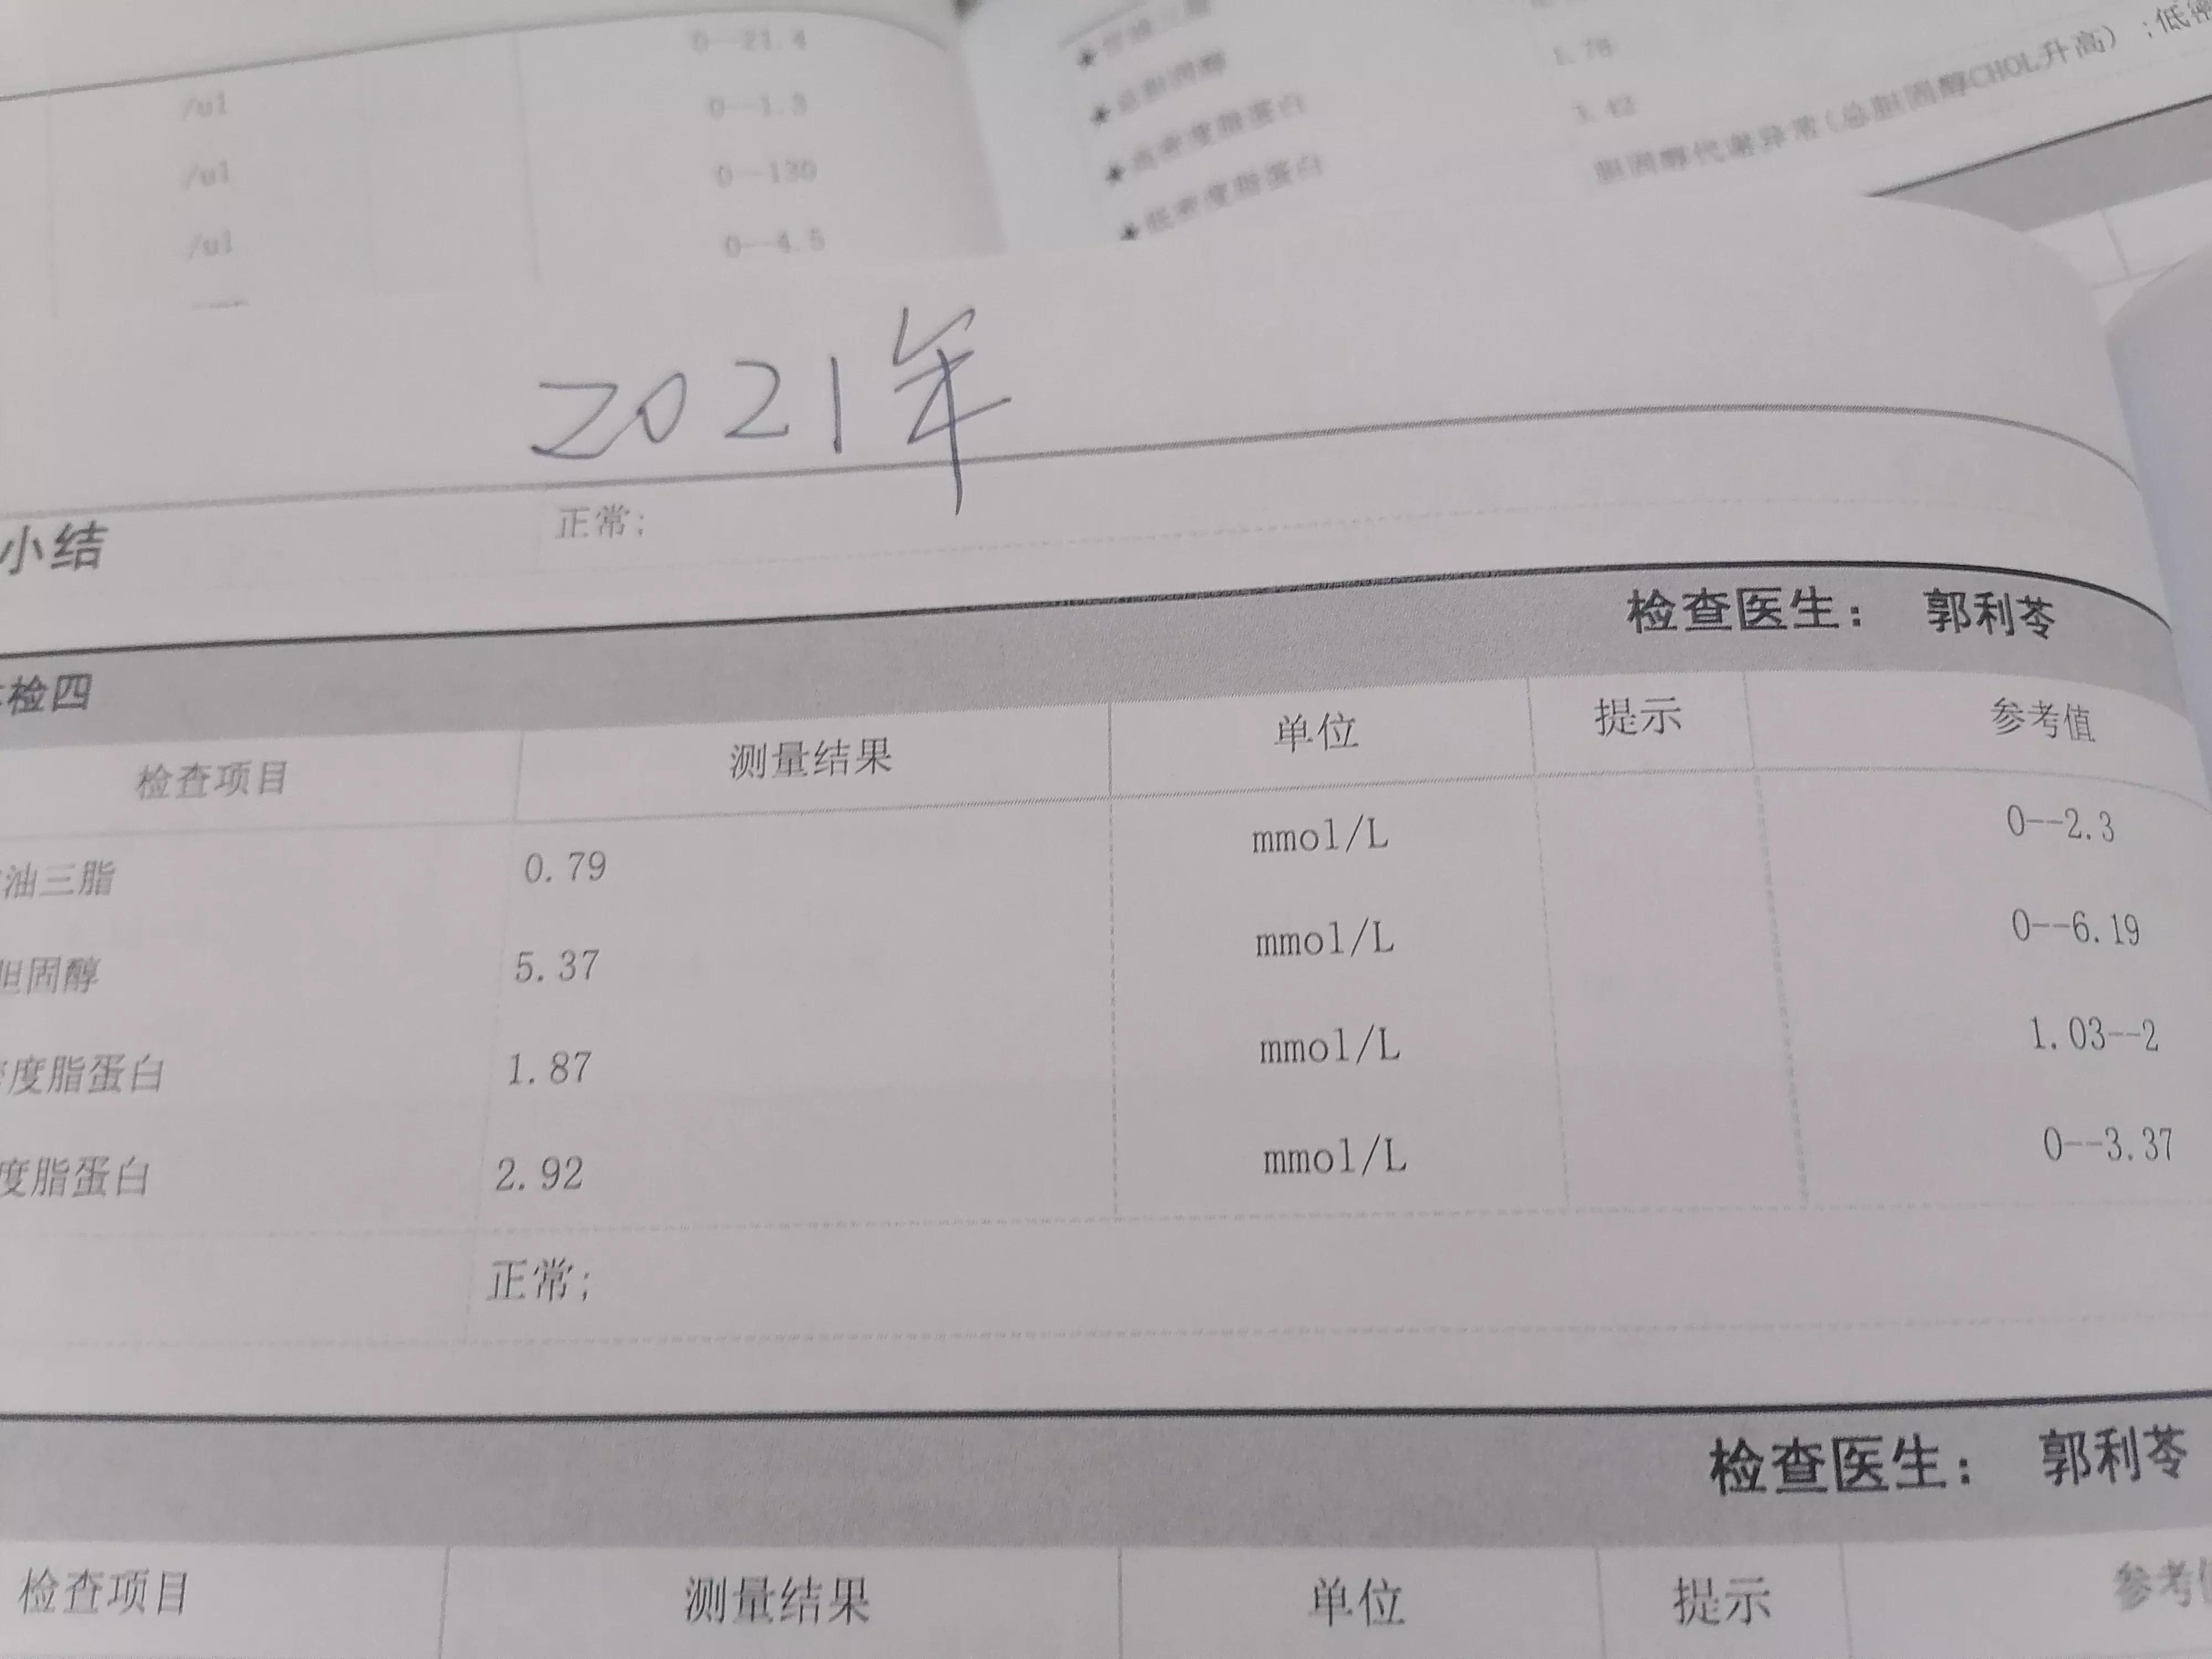 0--21.4
/ul 0--1.3
/ul 0--130
/ul 0--4.5
★总胆固醇 1.78
★高密度脂蛋白 3.42
★低密度脂蛋白
胆固醇代谢异常(总胆固醇CHOL升高);低密
2021年
小结 正常;
检四 检查医生: 郭利苓
检查项目 测量结果 单位 提示 参考值
油三脂 0.79 mmol/L 0--2.3
胆固醇 5.37 mmol/L 0--6.19
度脂蛋白 1.87 mmol/L 1.03--2
度脂蛋白 2.92 mmol/L 0--3.37
正常;
检查医生: 郭利苓
检查项目 测量结果 单位 提示 参考